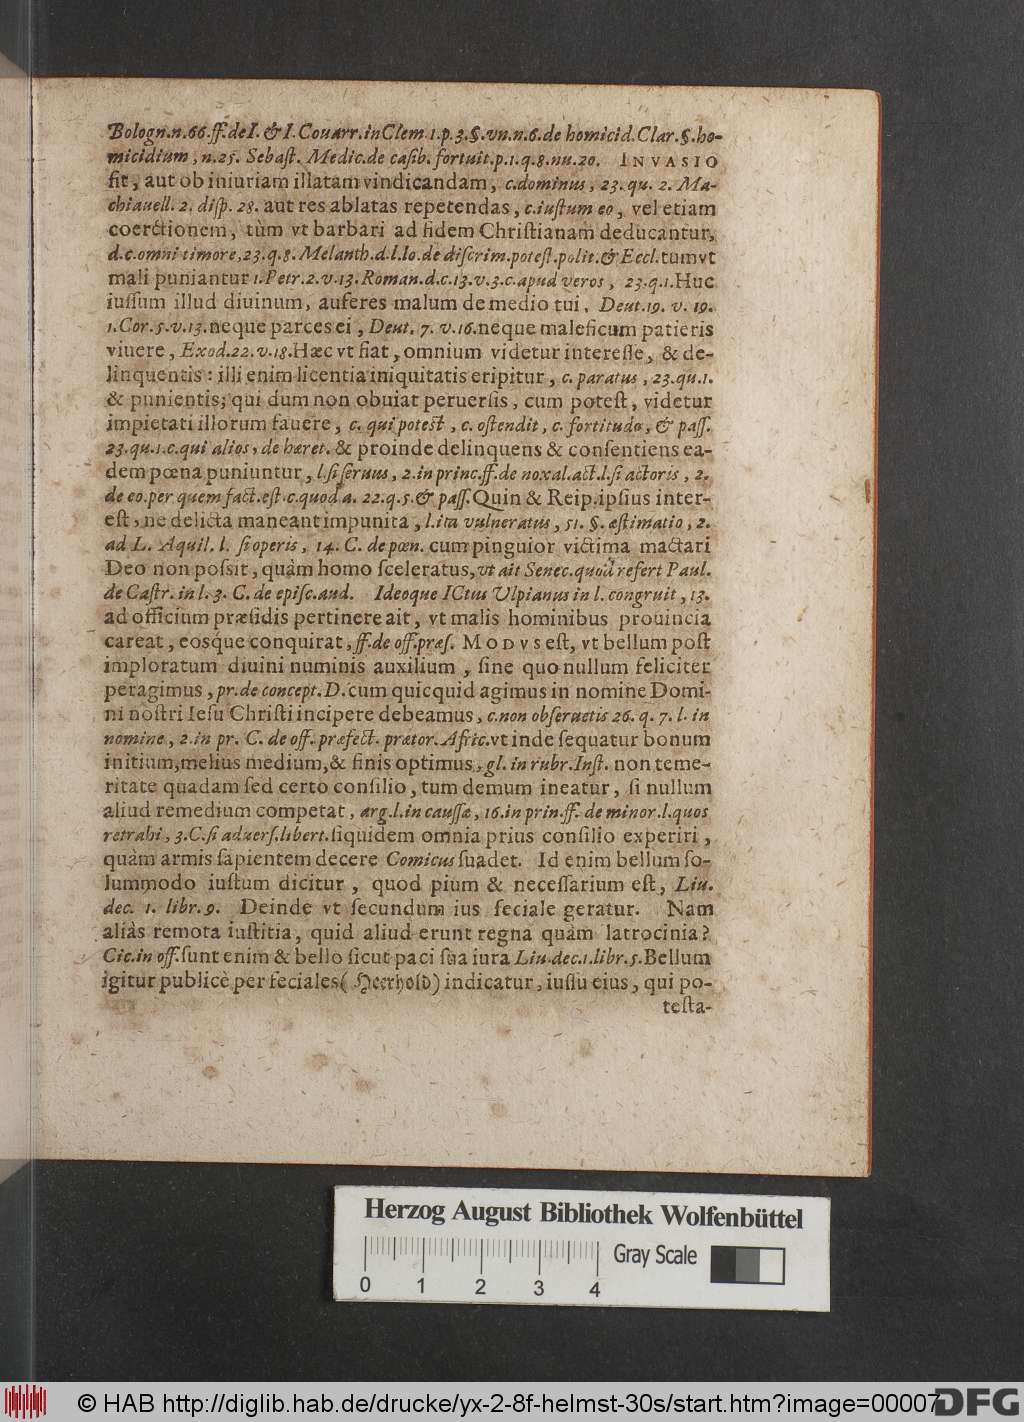 Bologn.n.66.ff.de I. & I. Couarr.in Clem 1.p.3.§.vn.n.6.de homicid.Clar.§.ho-
micidium, n.25. Sebaſt. Medic.de caſib. fortuit.p.1.q.8.nu.20. INVASIO
fit, aut ob iniuriam illatam vindicandam, c.dominus, 23.qu. 2. Ma-
chiauell. 2. diſp. 28. aut res ablatas repetendas, c.iuſtum eo, vel etiam
coerctionem, tùm vt barbari ad fidem Chriſtianam deducantur,
d.c.omni timore,23.q.8. Melanth.d.l.lo.de diſcrim.poteſt.polit.& Eccl.tumvt
mali puniantur 1.Petr.2.v.13.Roman.d.c.13.v.3.c.apud veros, 23.q.1.Huc
iuſſum illud diuinum, auferes malum de medio tui, Deut.19. v. 19.
1.Cor.5.v.13.neque parces ei, Deut. 7. v.16.neque maleficum patieris
viuere, Exod.22.v.18.Hæc vt fiat, omnium videtur intereſſe, & de-
linquentis: illi enim licentia iniquitatis eripitur, c. paratus, 23.qu.1.
& punientis; qui dum non obuiat peruerſis, cum poteſt, videtur
impietati illorum fauere, c. qui poteſt, c. oſtendit, c. fortitudo, & paſſ.
23.qu.1.c.qui alios, de hæret. & proinde delinquens & conſentiens ea-
dem pœna puniuntur, l.ſi ſeruus, 2.in princ.ff.de noxal.act.l.ſi actoris, 2.
de eo.per quem fact.eſt.c.quod a. 22.q.5.& paſſ.Quin & Reip.ipſius inter-
eſt, ne delicta maneant impunita, l.ita vulneratus, 51. §. æſtimatio, 2.
ad L. Aquil. l. ſi operis, 14. C. de pœn. cum pinguior victima mactari
Deo non poſsit, quàm homo ſceleratus, vt ait Senec.quod refert Paul.
de Caſtr. in l. 3. C. de epiſc.aud. Ideoque ICtus Vlpianus in l. congruit, 13.
ad officium præſidis pertinere ait, vt malis hominibus prouincia
careat, eosq́ue conquirat, ff.de off.præſ. MODVS eſt, vt bellum poſt
imploratum diuini numinis auxilium, ſine quo nullum feliciter
peragimus, pr.de concept.D.cum quicquid agimus in nomine Domi-
ni noſtri Ieſu Chriſti incipere debeamus, c.non obſeruetis 26. q. 7. l. in
nomine, 2.in pr. C. de off. præfect. prætor. Afric.vt inde ſequatur bonum
initium,melius medium,& finis optimus, gl. in rubr.Inſt. non teme-
ritate quadam ſed certo conſilio, tum demum ineatur, ſi nullum
aliud remedium competat, arg.l.in cauſſæ, 16.in prin.ff.de minor.l.quos
retrahi, 3.C.ſi aduerſ.libert.ſiquidem omnia prius conſilio experiri,
quàm armis ſapientem decere Comicus ſuadet. Id enim bellum ſo-
lummodo iuſtum dicitur, quod pium & neceſſarium eſt, Liu.
dec. 1. libr.9. Deinde vt ſecundum ius feciale geratur. Nam
aliàs remota iuſtitia, quid aliud erunt regna quàm latrocinia?
Cic.in off.ſunt enim & bello ſicut paci ſua iura Liu.dec.1.libr.5.Bellum
igitur publicè per feciales( Heerhold) indicatur, iuſſu eius, qui po-
teſta-
Herzog August Bibliothek Wolfenbüttel
Gray Scale
0 1 2 3 4
© HAB http://diglib.hab.de/drucke/yx-2-8f-helmst-30s/start.htm?image=00007
DFG